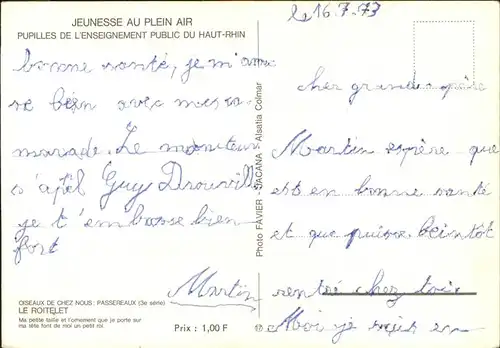 JEUNESSE AU PLEIN AIR
PUPILLES DE L'ENSEIGNEMENT PUBLIC DU HAUT-RHIN
le 16.7.73
cher grand-père
Martin espère que
est en bonne santé
et que puisse beintôt
rentré chez toi.
Moi je suis en
bonne santé, je m'amu
se bein avec mes ca
marade. Le moniteur
s'apèl Guy Drouvill
je t'embrasse bien
fort
Martin
OISEAUX DE CHEZ NOUS: PASSEREAUX (3e série)
LE ROITELET
Ma petite taille et l'ornement que je porte sur
ma tête font de moi un petit roi.
Prix : 1,00 F
Photo FAVIER - JACANA Alsatia Colmar